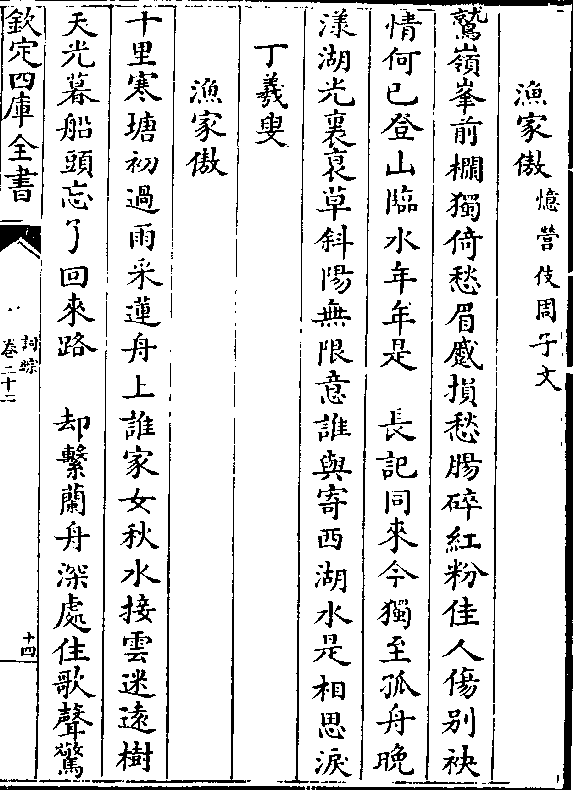 漁家傲憶營伎周子文
鷲嶺峯前欄獨倚愁眉蹙損愁腸碎紅粉佳人傷別袂
情何已登山臨水年年是　長記同來今獨至孤舟晚
漾湖光裏衰草斜陽無限意誰與寄西湖水是相思淚
丁羲叟
漁家傲
十里寒塘初過雨采蓮舟上誰家女秋水接雲迷遠樹
天光暮船頭忘了回來路　却繫蘭舟深處住歌聲驚
欽定四庫全書
詞綜
卷二十二
十四